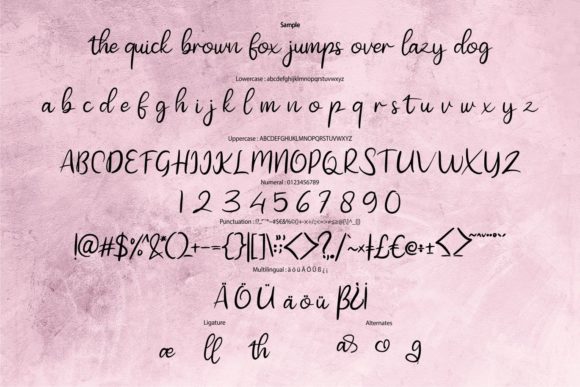 Sample
the quick brown fox jumps over lazy dog
Lowercase : abcdefghijklmnopqrstuvwxyz
a b c d e f g h i j k l m n o p q r s t u v w x y z
Uppercase : ABCDEFGHIJKLMNOPQRSTUVWXYZ
ABCDEFGHIJKLMNOPQRSTUVWXYZ
Numeral : 0123456789
1 2 3 4 5 6 7 8 9 0
Punctuation :
!@#$%^&()_+-={}|[]\:;<>?,./~×‡£€@÷±
Multilingual : ä ö ü Ä Ö Ü ß ¿ ¡
ÄÖÜ äöü ßÜ
Ligature Alternates
æ ll th as o g